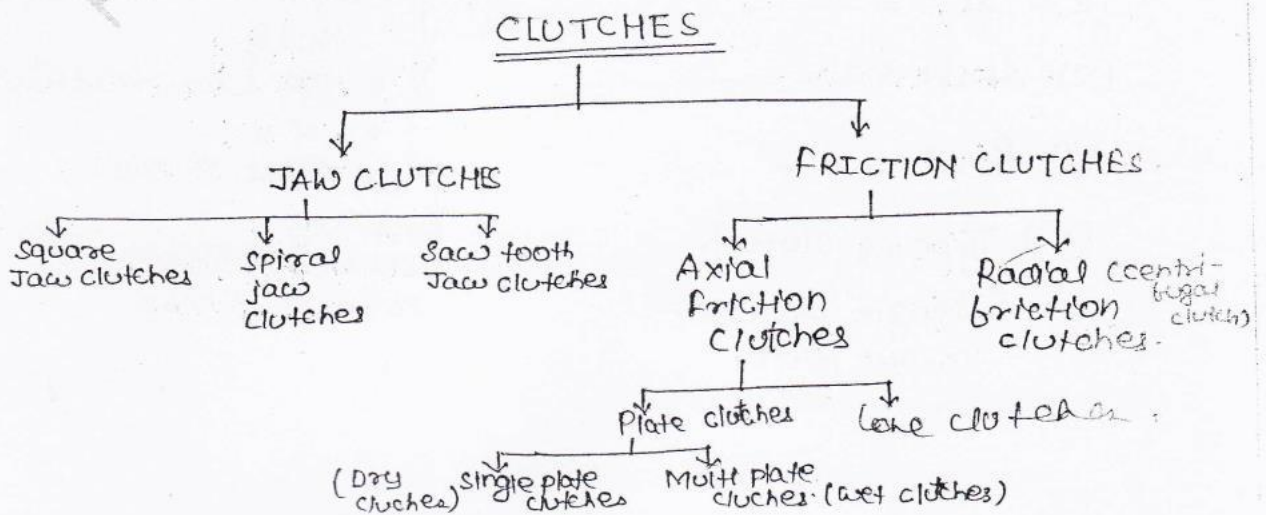 CLUTCHES
JAW CLUTCHES
FRICTION CLUTCHES
Square
Jaw clutches
Spiral
jaw
clutches
Saw tooth
Jaw clutches
Axial
friction
clutches
Radial (centri-
fugal
clutch)
friction
clutches.
Plate clutches
Cone clutches.
(Dry
cluches)
Single plate
clutches
Multi plate
cluches. (wet clutches)